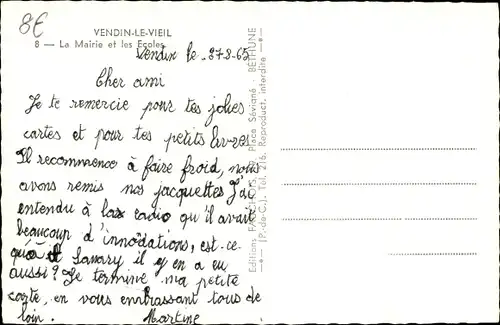 8€
VENDIN-LE-VIEIL
8 — La Mairie et les Ecoles
Vendin le 27-8-65
Cher ami
Je te remercie pour tes jolies
cartes et pour tes petits livres
Il recommence à faire froid, nous
avons remis nos jacquettes J'ai
entendu à la radio qu'il avait
beaucoup d'innodations, est-ce-
qu'à Savary il y en a eu
aussi? Je termine ma petite
carte, en vous embrassant tous de
loin. Martine
Editions Place Sévigné - BETHUNE
(P.-de-C.). Tél. 216. Reproduct. interdite